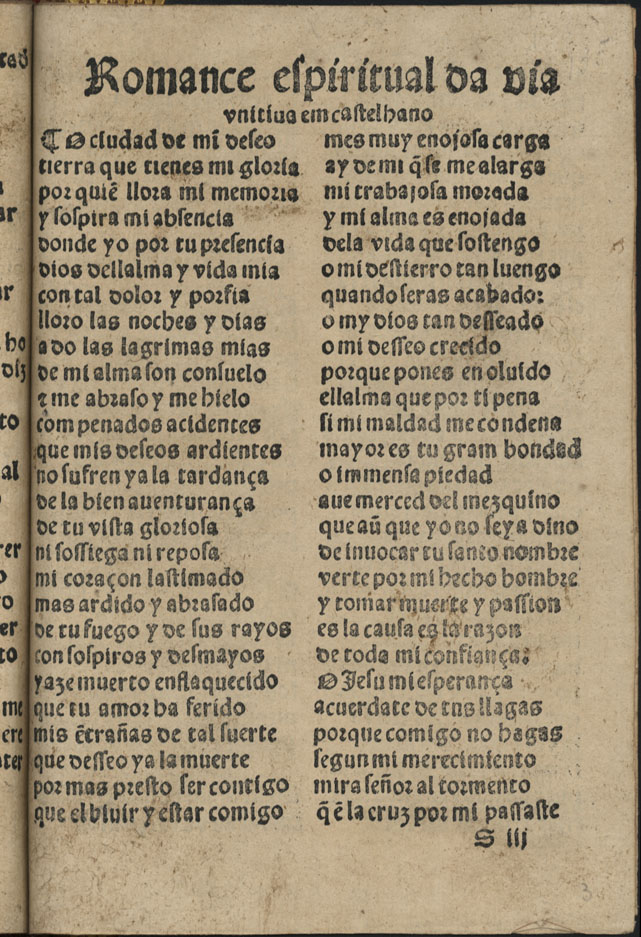 Romance espiritual da via
vnitiua em castelhano
¶ O ciudad de mĩ deseo
tierra que tienes mi gloria
por quiẽ llora mi memoria
y sospira mi absencia
donde yo por tu presencia
dios dellalma y vida mia
con tal dolor y porfia
lloro las noches y dias
ado las lagrimas mias
de mi alma son consuelo
τ me abraso y me hielo
com penados acidentes
que mis deseos ardientes
no sufren ya la tardança
de la bien auenturança
de tu vista gloriosa
ni sossiega ni reposa
mi coraçon lastimado
mas ardido y abrasado
de tu fuego y de sus rayos
con sospiros y desmayos
yaze muerto enflaquecido
que tu amor ha ferido
mis ẽtrañas de tal suerte
que desseo ya la muerte
por mas presto ser contigo
que el biuir y estar comigo
mes muy enojosa carga
ay de mi q̃ se me alarga
mi trabajosa morada
y mi alma es enojada
dela vida que sostengo
o mi destierro tan luengo
quando seras acabado:
o my dios tan desseado
o mi desseo crecido
porque pones en oluido
ellalma que por ti pena
si mi maldad me condena
mayor es tu gram bondad
o immensa piedad
aue merced del mezquino
que aũ que yo no seya dino
de inuocar tu santo nombre
verte por mi hecho hombre
y tomar muerte y passion
es la causa es la razon
de toda mi confiança:
O Jesu mi esperança
acuerdate de tus llagas
porque comigo no hagas
segun mi merecimiento
mira señor al tormento
q̃ ẽ la cruz por mi passaste
S iij
3